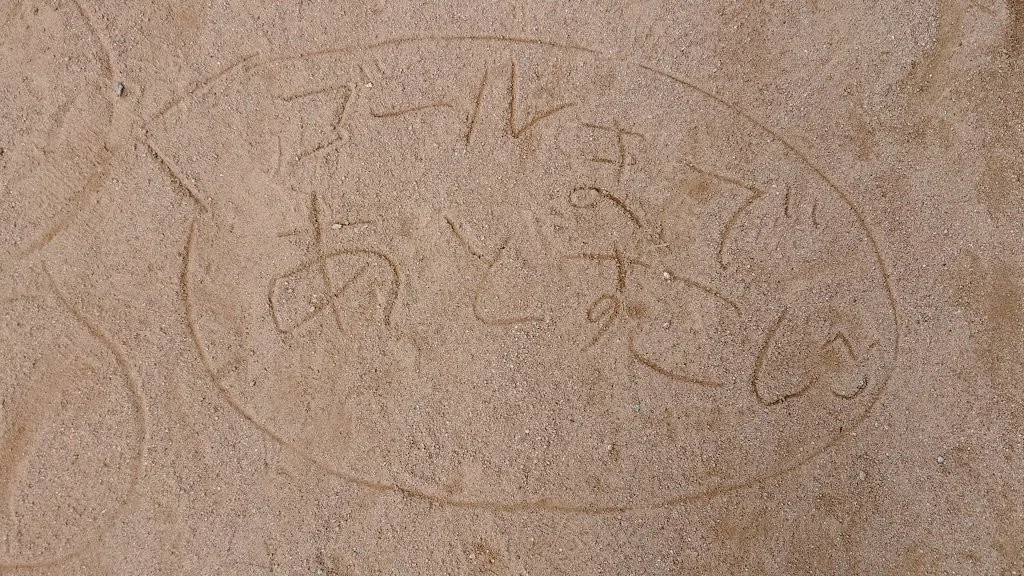 ゴールまで
あとすこし